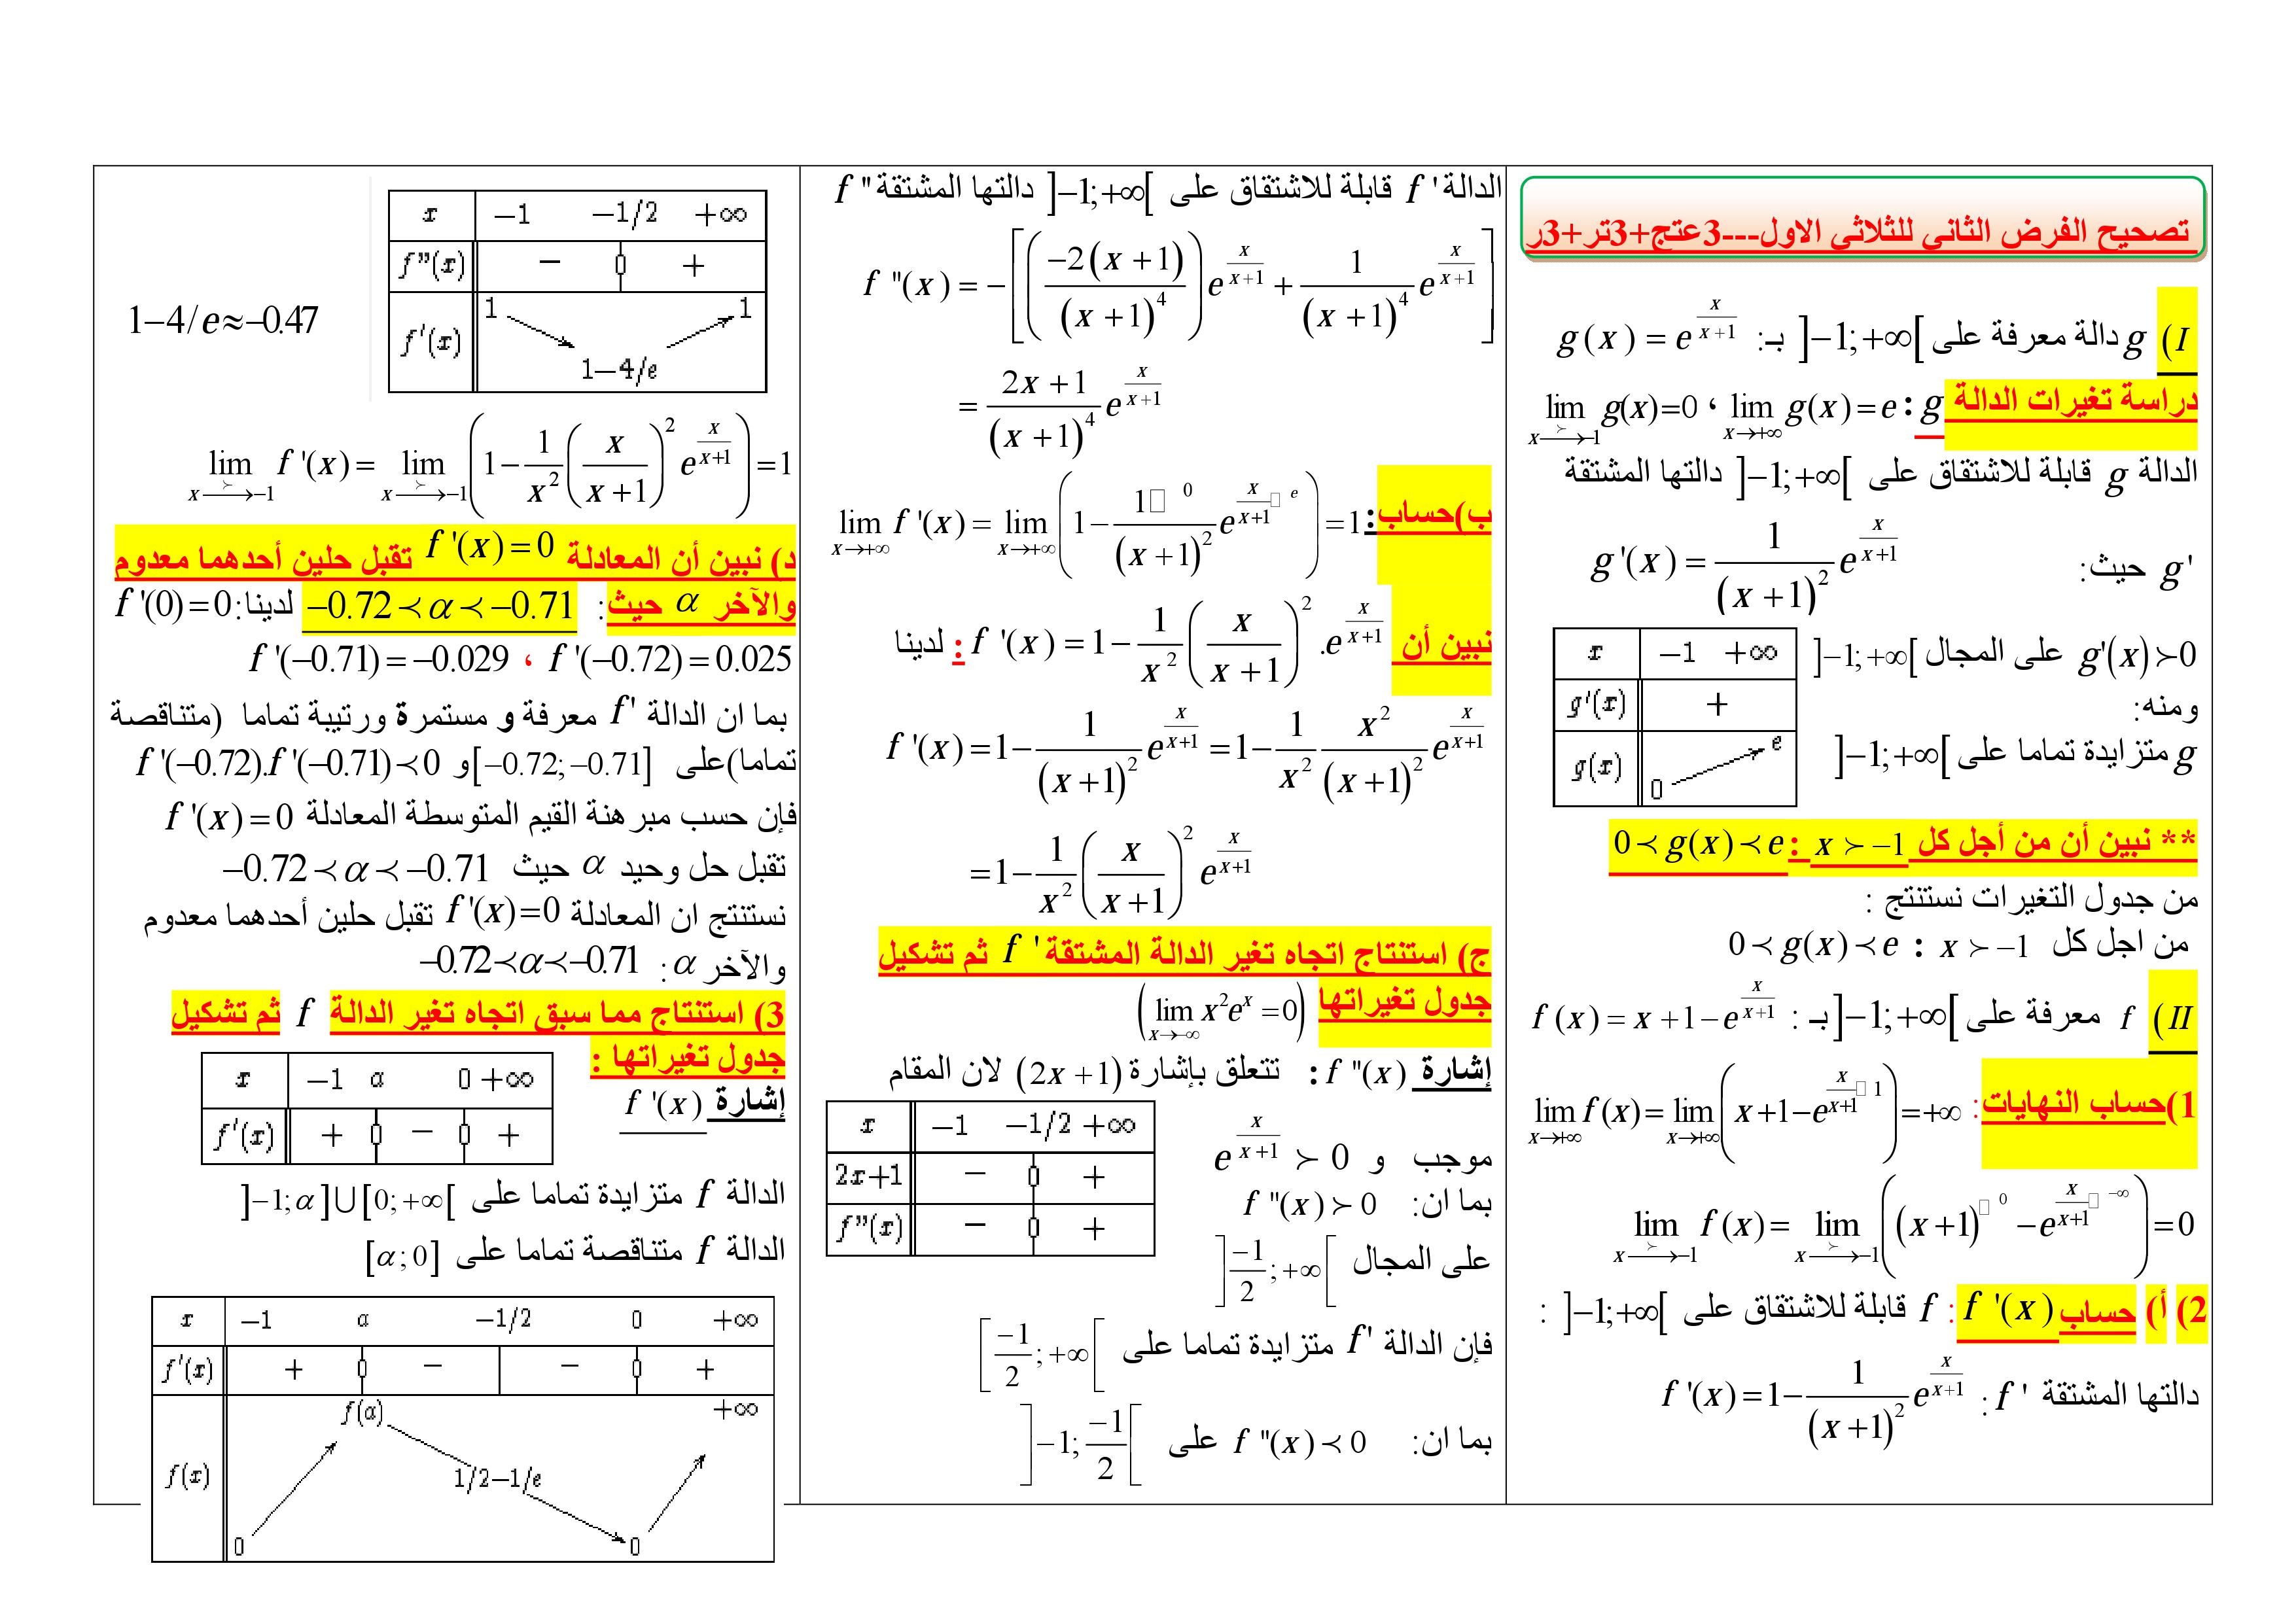 تصحيح الفرض الثاني للثلاثي الاول---3عتج+3تر+3ر
I) g دالة معرفة على ]-1;+∞[ بـ: g(x) = e^{x/(x+1)}
دراسة تغيرات الدالة g : lim_{x→+∞} g(x)=e ، lim_{x→≻-1} g(x)=0
الدالة g قابلة للاشتقاق على ]-1;+∞[ دالتها المشتقة
g' حيث: g'(x) = 1/(x+1)^2 e^{x/(x+1)}
g'(x)≻0 على المجال ]-1;+∞[
ومنه:
g متزايدة تماما على ]-1;+∞[
x -1 +∞
g'(x) +
g(x) 0 e
** نبين أن من أجل كل x ≻ -1 : 0≺g(x)≺e
من جدول التغيرات نستنتج :
من اجل كل x ≻ -1 : 0≺g(x)≺e
II) f معرفة على ]-1;+∞[ بـ : f(x) = x+1-e^{x/(x+1)}
1)حساب النهايات: lim_{x→+∞} f(x) = lim_{x→+∞} (x+1-e^{x/(x+1) □ 1}) = +∞
lim_{x→≻-1} f(x) = lim_{x→≻-1} ((x+1)^{□ 0} - e^{x/(x+1) □ -∞}) = 0
2) أ) حساب f'(x) : f قابلة للاشتقاق على ]-1;+∞[ :
دالتها المشتقة f' : f'(x) = 1 - 1/(x+1)^2 e^{x/(x+1)}
الدالة f' قابلة للاشتقاق على ]-1;+∞[ دالتها المشتقة f"
f"(x) = -[(-2(x+1)/(x+1)^4) e^{x/(x+1)} + 1/(x+1)^4 e^{x/(x+1)}]
= (2x+1)/(x+1)^4 e^{x/(x+1)}
ب)حساب: lim_{x→+∞} f'(x) = lim_{x→+∞} (1 - 1□ 0/(x+1)^2 e^{x/(x+1) □ e}) = 1
نبين أن f'(x) = 1 - 1/x^2 (x/(x+1))^2 .e^{x/(x+1)} : لدينا
f'(x) = 1 - 1/(x+1)^2 e^{x/(x+1)} = 1 - 1/x^2 x^2/(x+1)^2 e^{x/(x+1)}
= 1 - 1/x^2 (x/(x+1))^2 e^{x/(x+1)}
ج) استنتاج اتجاه تغير الدالة المشتقة f' ثم تشكيل
جدول تغيراتها (lim_{x→-∞} x^2e^x = 0)
إشارة f"(x) : تتعلق بإشارة (2x+1) لان المقام
موجب و e^{x/(x+1)} ≻ 0
x -1 -1/2 +∞
2x+1 - 0 +
f"(x) - 0 +
بما ان: f"(x) ≻ 0
على المجال ]-1/2;+∞[
فإن الدالة f' متزايدة تماما على [-1/2;+∞[
بما ان: f"(x) ≺ 0 على ]-1;-1/2[
x -1 -1/2 +∞
f"(x) - 0 +
f'(x) 1 1-4/e 1
1-4/e≈-0.47
lim_{x→≻-1} f'(x) = lim_{x→≻-1} (1 - 1/x^2 (x/(x+1))^2 e^{x/(x+1)}) = 1
د) نبين أن المعادلة f'(x)=0 تقبل حلين أحدهما معدوم
والآخر α حيث : -0.72≺α≺-0.71 لدينا: f'(0)=0
f'(-0.72)=0.025 ، f'(-0.71)=-0.029
بما ان الدالة f' معرفة و مستمرة ورتيبة تماما (متناقصة
تماما)على [-0.72;-0.71] و f'(-0.72).f'(-0.71)≺0
فإن حسب مبرهنة القيم المتوسطة المعادلة f'(x)=0
تقبل حل وحيد α حيث -0.72≺α≺-0.71
نستنتج ان المعادلة f'(x)=0 تقبل حلين أحدهما معدوم
والآخر α : -0.72≺α≺-0.71
3) استنتاج مما سبق اتجاه تغير الدالة f ثم تشكيل
جدول تغيراتها :
إشارة f'(x)
x -1 α 0 +∞
f'(x) + 0 - 0 +
الدالة f متزايدة تماما على ]-1;α]∪[0;+∞[
الدالة f متناقصة تماما على [α;0]
x -1 α -1/2 0 +∞
f'(x) + 0 - - 0 +
f(x) 0 f(α) 1/2-1/e 0 +∞